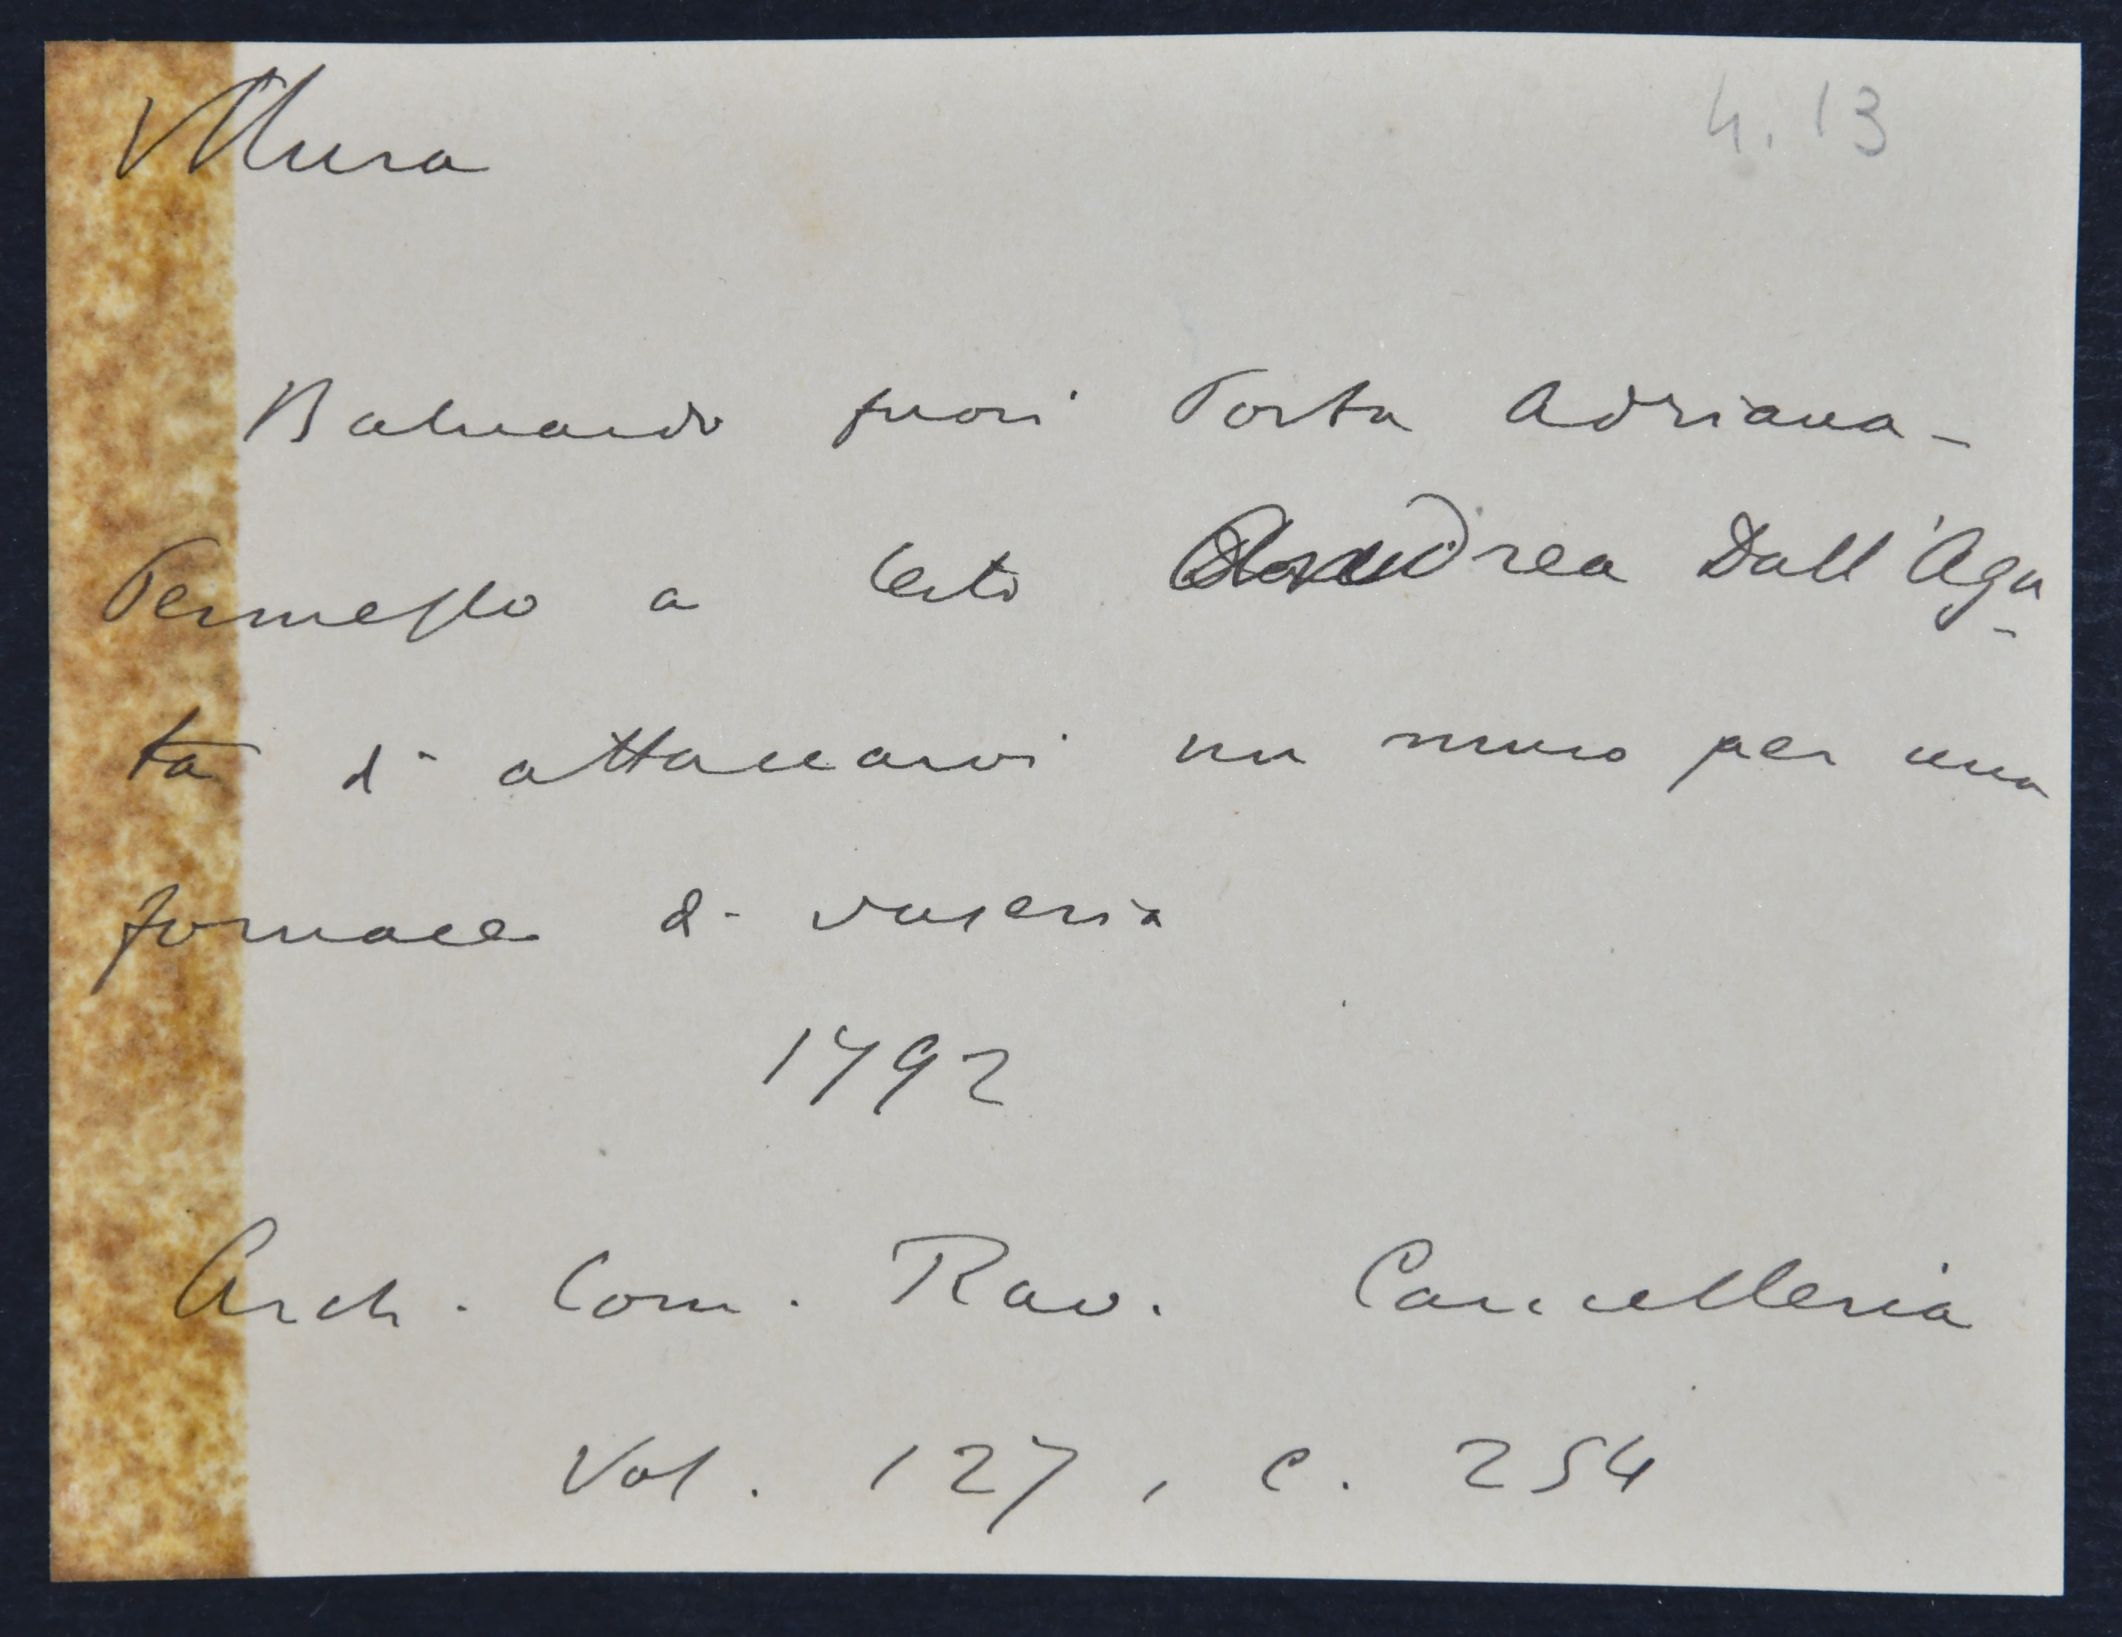 Mura
4. 13
Baluardo fuori Porta Adriana -
Permesso a Certo Andrea Dall'Aga-
ta di attaccarvi un muro per una
fornace di vaseria
1792
Arch. Com. Rav. Cancelleria
Vol. 127, c. 254